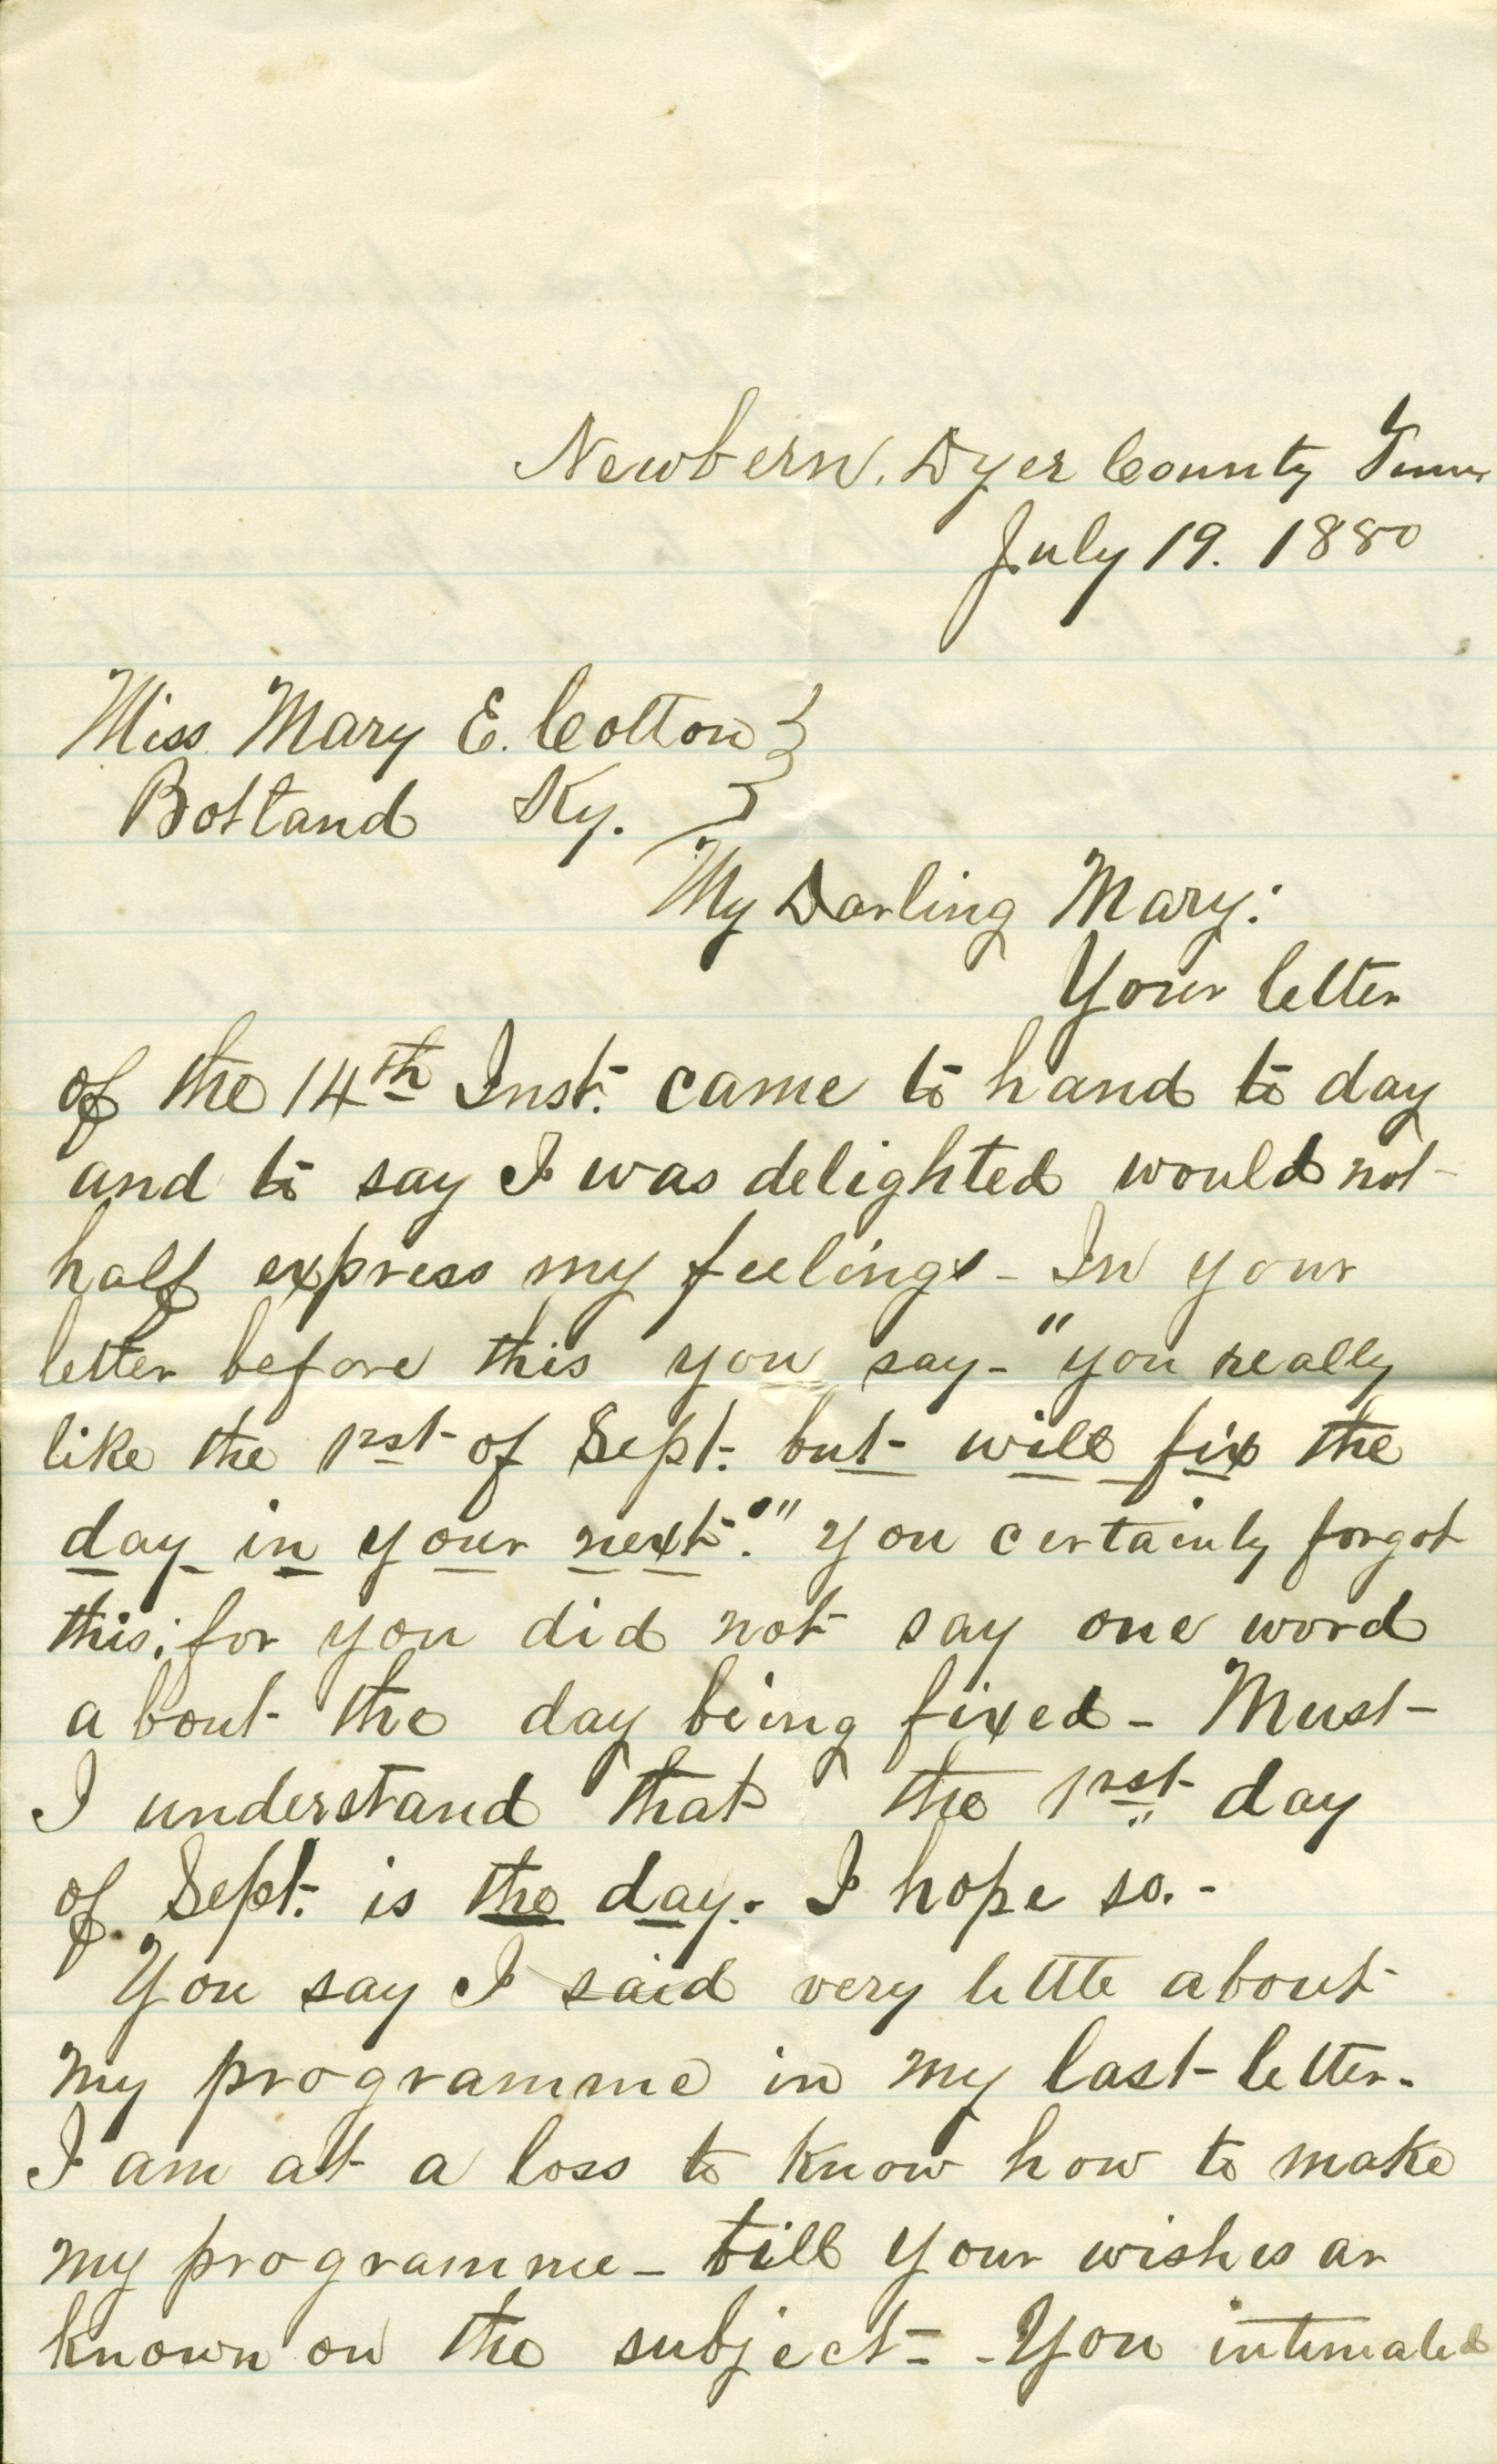 Newbern, Dyer County Tenn
July 19. 1880
Miss Mary E. Cotton
Botland Ky.
My Darling Mary:
Your letter
of the 14th Inst. came to hand to day
and to say I was delighted would not
half express my feelings - In your
letter before this you say - "you really
like the 1rst of Sept. but will fix the
day in your next." You certainly forgot
this; for you did not say one word
about the day being fixed - Must
I understand that the 1rst day
of Sept. is the day. I hope so. -
You say I said very little about
my programme in my last letter.
I am at a loss to know how to make
my programme - till your wishes ar
known on the subject - - You intimated